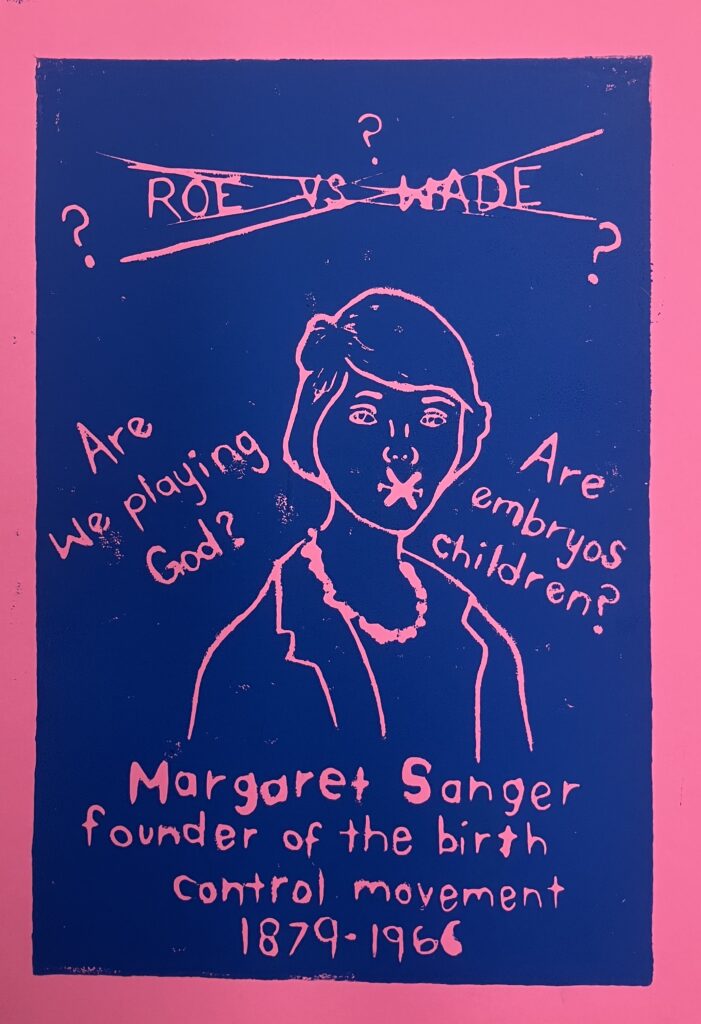 ?
ROE VS WADE
? ?
Are
We playing
God?
Are
embryos
children?
Margaret Sanger
founder of the birth
control movement
1879-1966